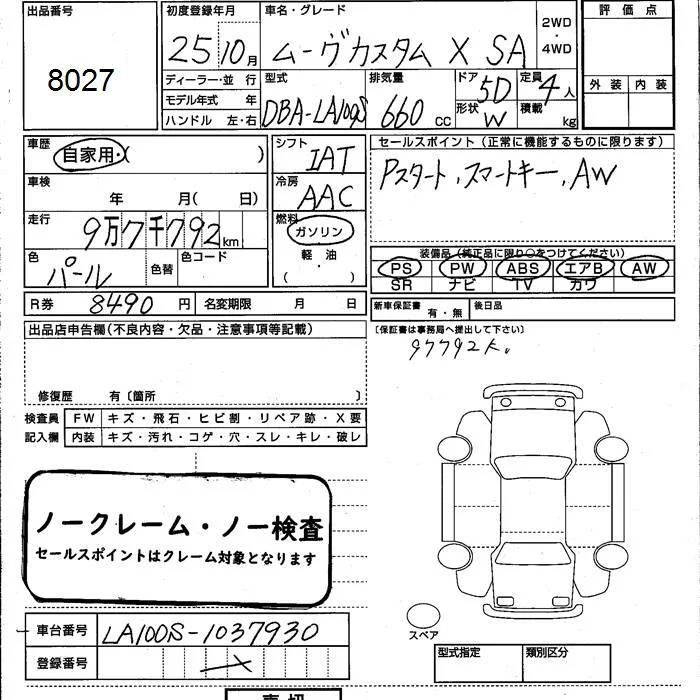 出品番号
8027
初度登録年月
25 10月
車名・グレード
ムーヴカスタム X SA
2WD
・
4WD
評価点
外装 内装
ディーラー・並行
モデル年式 年
ハンドル 左・右
型式
DBA-LA100S
排気量
660 cc
ドア 5D
形状 W
定員 4人
積載 kg
車歴
自家用・( )
シフト
IAT
セールスポイント(正常に機能するものに限ります)
Pスタート,スマートキー,AW
車検
年 月( 日)
冷房
AAC
走行
9万7千792km
燃料
ガソリン
軽油
( ・ )
色
パール
色替
色コード
装備品(純正品に限り○をつけてください)
PS PW ABS エアB AW
SR ナビ TV カワ
R券 8490円 名変期限 月 日
新車保証書 有・無 後日品
出品店申告欄(不良内容・欠品・注意事項等記載)
〔保証書は事務局へ提出して下さい〕
97792K.
修復歴 有〔箇所 〕
検査員 FW キズ・飛石・ヒビ割・リペア跡・X要
記入欄 内装 キズ・汚れ・コゲ・穴・スレ・キレ・破レ
ノークレーム・ノー検査
セールスポイントはクレーム対象となります
スペア
車台番号 LA100S-1037930
登録番号
型式指定 類別区分